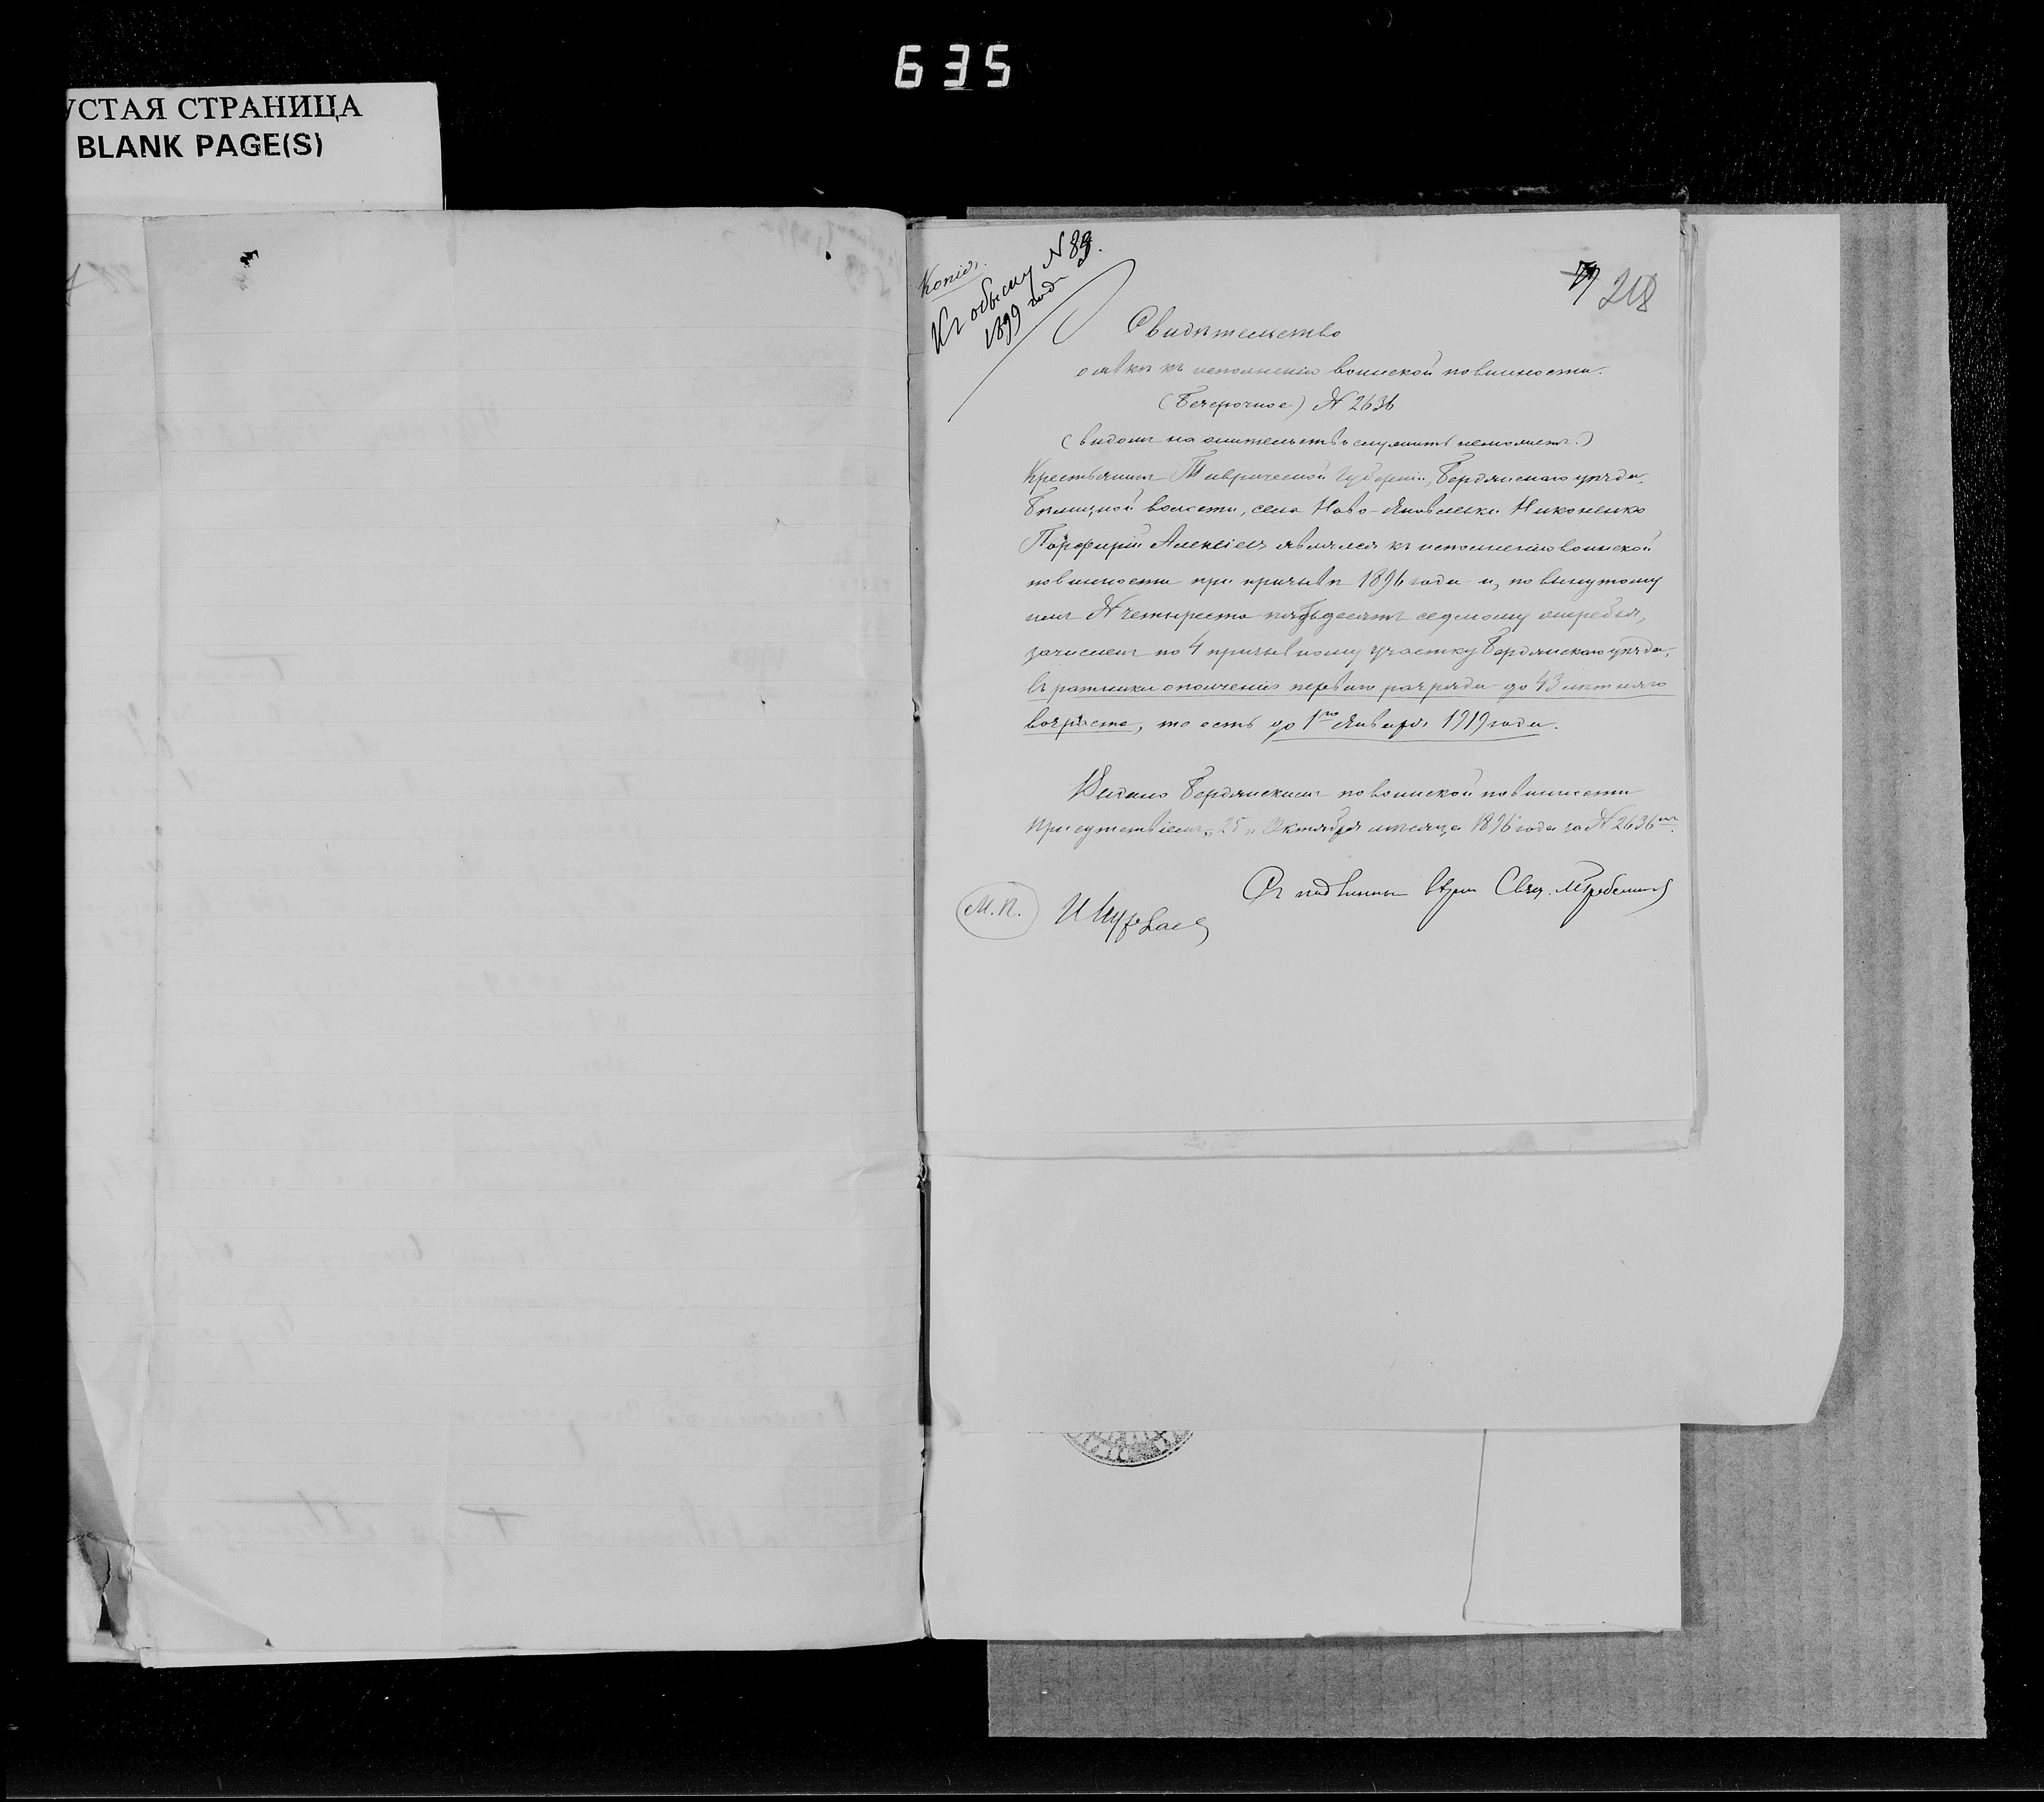 635
УСТАЯ СТРАНИЦА
BLANK PAGE(S)
Копія.
Къ обыску № 83.
1899 года
218
Свидѣтельство
о явкѣ къ исполненію воинской повинности.
(Безсрочное) № 2636
(видомъ на жительство служить не можетъ.)
Крестьянинъ Таврической Губерніи, Бердянскаго уѣзда,
волости, села Ново-Яковлевки Никоненко
Порфирій Алексѣевъ являлся къ исполненію воинской
повинности при призывѣ 1896 года и, по вынутому
имъ № четыреста пятьдесятъ седьмому жеребья,
зачисленъ по 4 призывному участку Бердянскаго уѣзда,
въ ратники ополченія перваго разряда до 43 лѣтняго
возраста, то есть до 1го Января 1919 года.
Выдано Бердянскимъ по воинской повинности
Присутствіемъ „25„ Октября мѣсяца 1896 года за № 2636мъ.
Съ подлиннымъ вѣрно Свящ.
М.П.